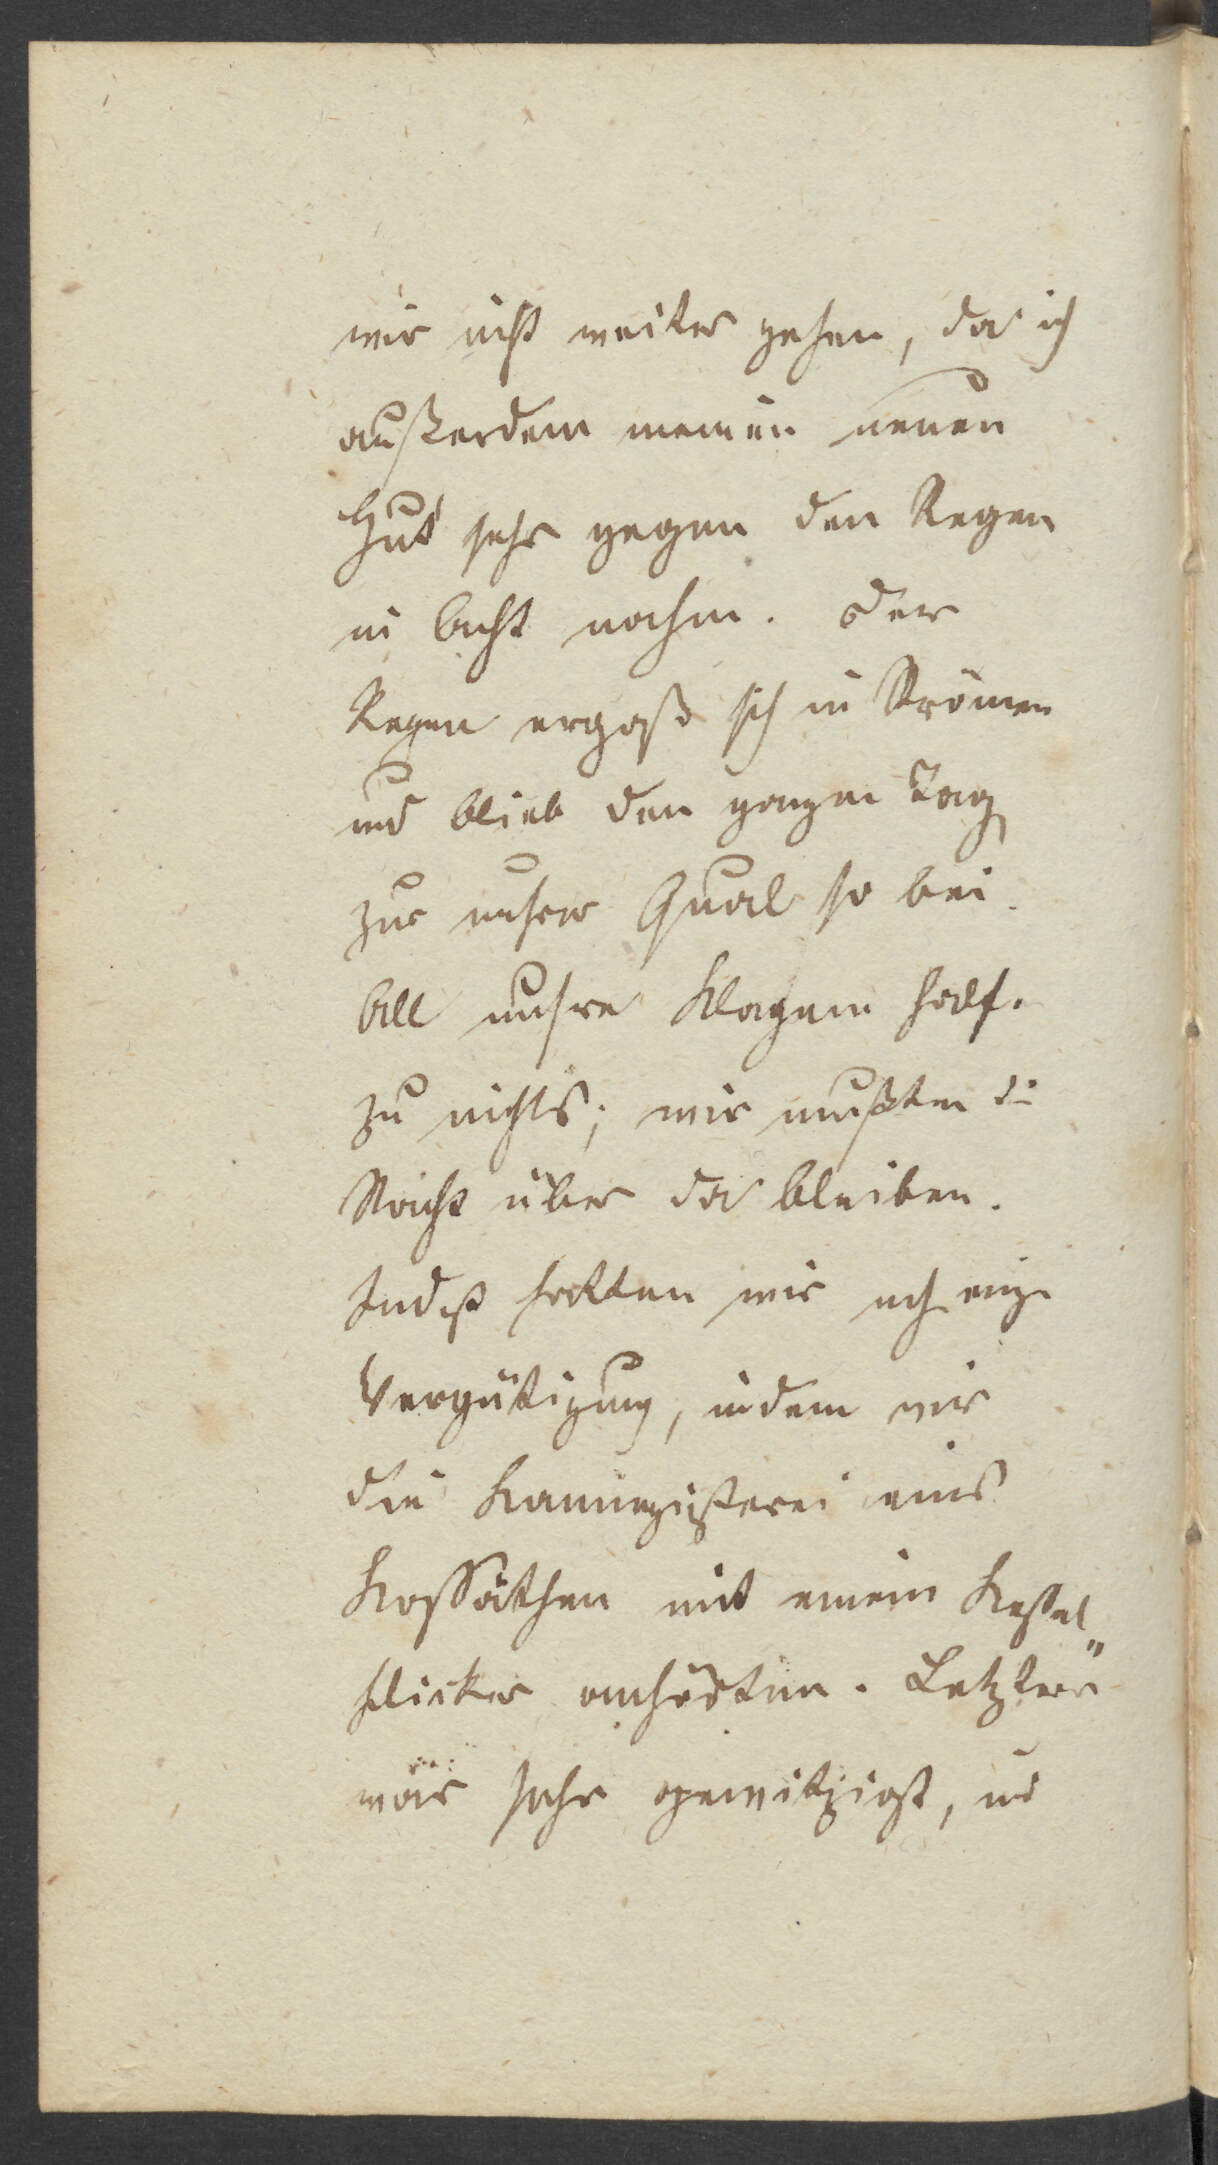 wir nicht weiter gehen, da ich
außerdem meinen neuen
Hut sehr gegen den Regen
in Acht nahm. Der
Regen ergoß sich in Strömen
und blieb den ganzen Tag
zur unsrer Qual so bei.
All unsre Klagen half.
zu nichts; wir mußten die
Nacht über da bleiben.
Indeß hatten wir noch einige
Vergütigung, indem wir
die Kannegießerei eines
Kossäthen mit einem Kessel
flicker anhörten. Letzterer
war sehr gewitzigt, und